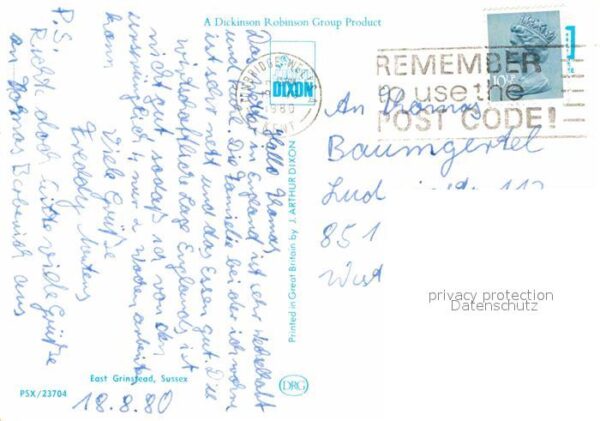 A Dickinson Robinson Group Product
DIXON
TUNBRIDGE WELLS
1980
KENT
REMEMBER
to use the
POST CODE!
10½P
1
Hallo Thomas
Das Wetter in England ist sehr wechselhaft
und kühl. Die Familie bei der ich wohne
ist sehr nett und das Essen gut. Die
wirtschaftliche Lage Englands ist
nicht gut sodaß ich von den
ursprünglich 4 nur 2 Wochen arbeiten
kann
Viele Grüße
Freddy
P.S.
Richte doch bitte viele Grüße
an aus
An Thomas
Baumgertel
851
privacy protection
Datenschutz
Printed in Great Britain by J. ARTHUR DIXON
East Grinstead, Sussex
PSX/23704
18.8.80
DRG